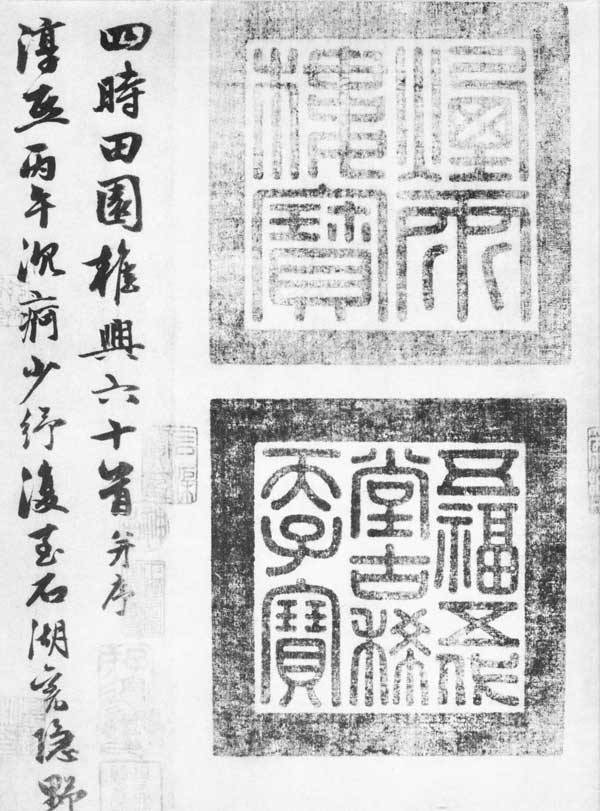 煙雨
樓寶
五福五代
堂古稀
天子寶
四時田園雜興六十首并序
淳熙丙午沉痾少紓復至石湖舊隱野